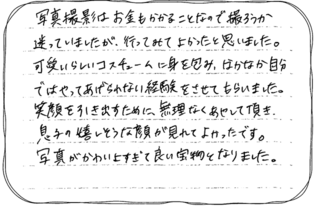 写真撮影はお金もかかることなので撮ろうか
迷っていましたが、行ってみてよかったと思いました。
可愛いらしいコスチュームに身を包み、なかなか自分
ではやってあげられない経験をさせてもらいました。
笑顔を引き出すために、無理なくあやして頂き、
息子の嬉しそうな顔が見れてよかったです。
写真がかわいすぎて良い宝物となりました。